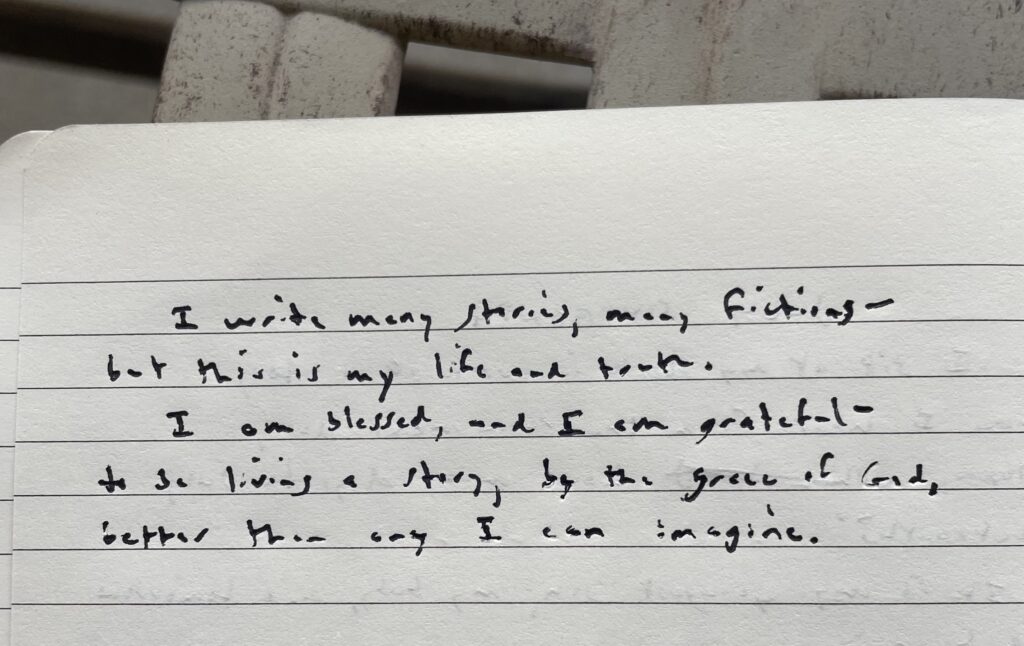 I write many stories, many fictions—
but this is my life and truth.
I am blessed, and I am grateful—
to be living a story, by the grace of God,
better than any I can imagine.